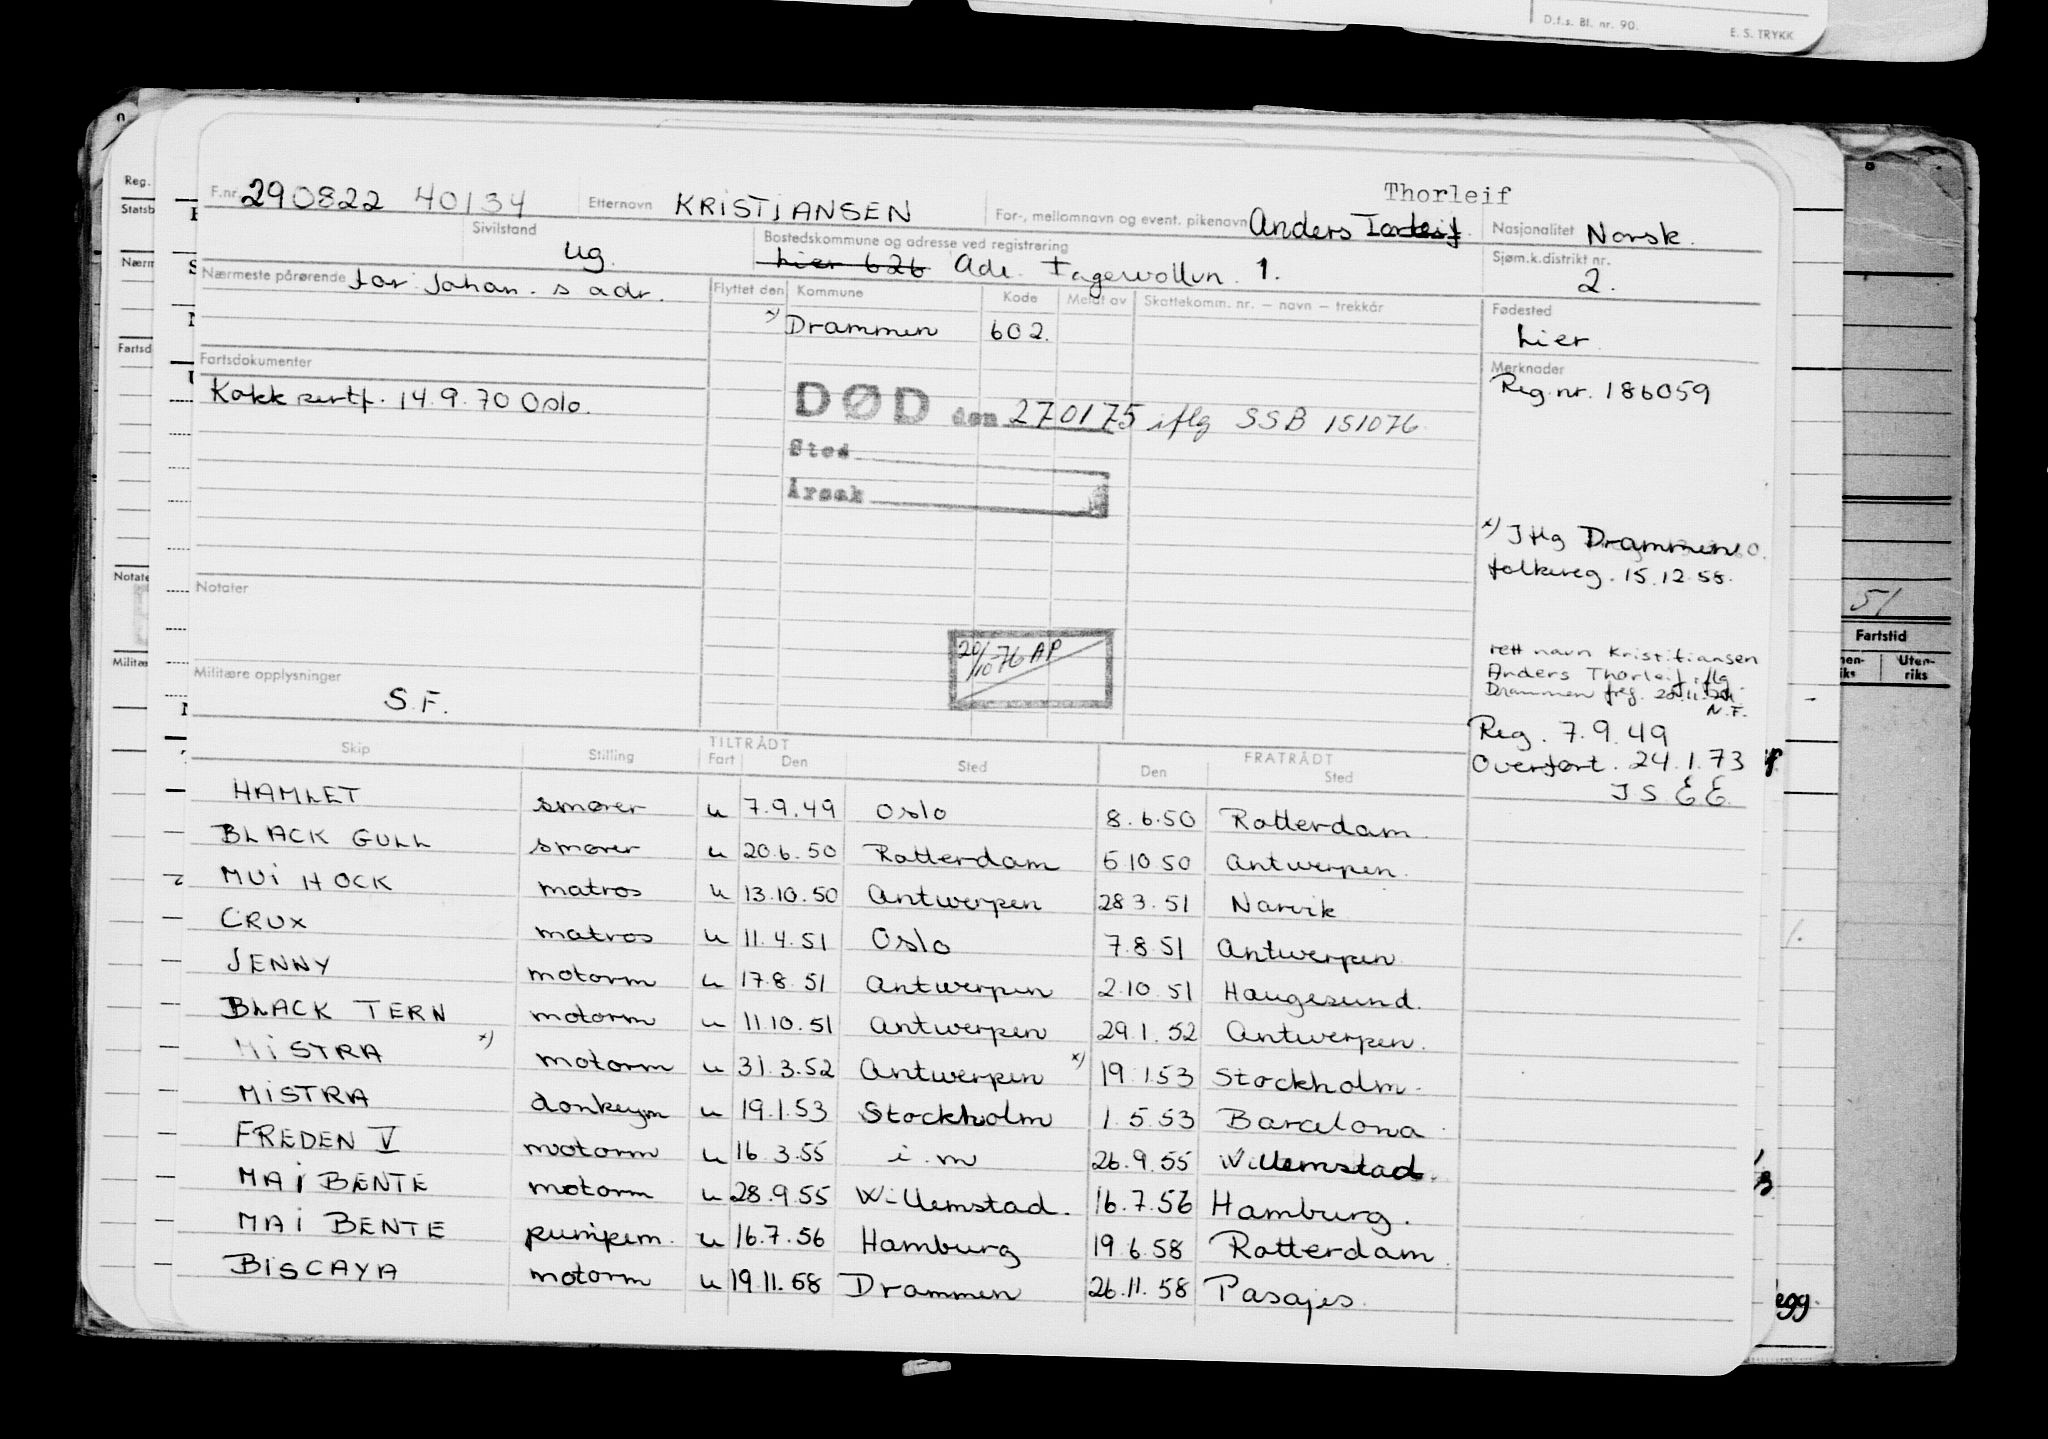 D.f.s. Bl. nr. 90. E. S. TRYKK
Thorleif
F.nr. 290822 40134 Etternavn KRISTIANSEN For-, mellomnavn og event. pikenavn Anders Torleif Nasjonalitet Norsk.
Sivilstand ug. Bostedskommune og adresse ved registrering Lier 626 Adr. 1. Sjøm.k.distrikt nr. 2.
Nærmeste pårørende Far: Johan. s adr. Flyttet den Kommune Kode Meldt av Skattekomm. nr. – navn – trekkår Fødested
x) Drammen 602. Lier.
Fartsdokumenter Merknader
Kokk sertf. 14.9.70 Oslo. Reg.nr. 186059
DØD den 270175 iflg SSB 151076
Sted
Årsak
x) Iflg Drammen
folkereg. 15.12.58.
Notater
20/10-76 AP
rett navn Kristiansen
Anders Thorleif iflg
Drammen freg.
N.F.
Militære opplysninger
S.F.
Reg. 7.9.49
Overført. 24.1.73
J S E E
Skip Stilling TILTRÅDT Fart Den Sted FRATRÅDT Den Sted
HAMLET smører u 7.9.49 Oslo 8.6.50 Rotterdam.
BLACK GULL smører u 20.6.50 Rotterdam 5 10 50 Antwerpen.
MUI HOCK matros u 13.10.50 Antwerpen 28 3.51 Narvik
CRUX matros u 11.4.51 Oslo 7.8.51 Antwerpen
JENNY motorm u 17.8.51 Antwerpen 2.10.51 Haugesund.
BLACK TERN motorm u 11.10.51 Antwerpen 29.1.52 Antwerpen.
MISTRA x) motorm u 31.3.52 Antwerpen x) 19.1.53 Stockholm.
MISTRA donkeym u 19.1.53 Stockholm 1.5.53 Barcelona
FREDEN V motorm u 16.3.55 i.m 26.9.55 Willemstad.
MAI BENTE motorm u 28.9.55 Willemstad. 16.7.56 Hamburg.
MAI BENTE pumpem. u 16.7.56 Hamburg 19.6.58 Rotterdam
BISCAYA motorm u 19.11.58 Drammen 26.11.58 Pasajes.
Reg.
Statsb
Nærm
Fartsd
Notate
Militæ
51
Fartstid
Uten-
riks
egg.